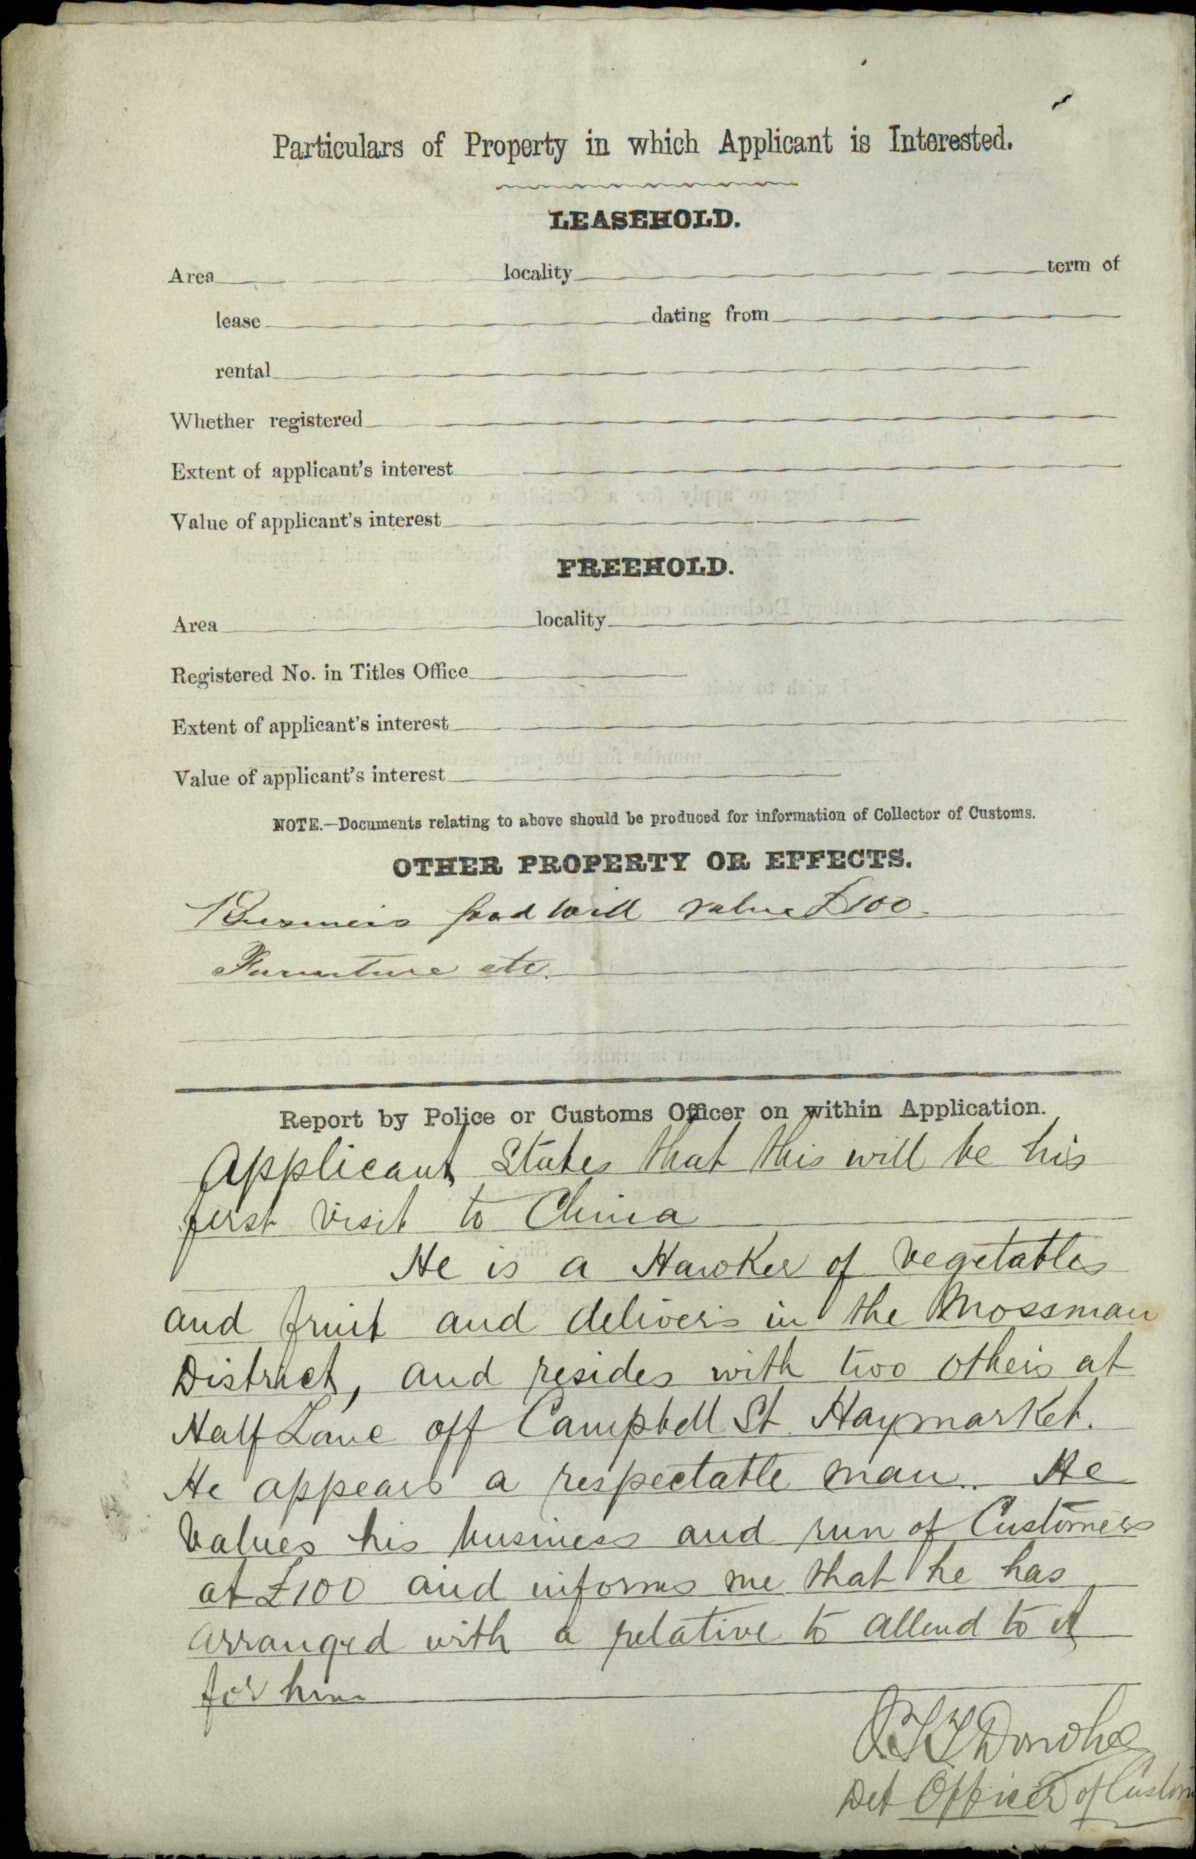 Particulars of Property in which Applicant is Interested.
LEASEHOLD.
Area locality term of
lease dating from
rental
Whether registered
Extent of applicant's interest
Value of applicant's interest
FREEHOLD.
Area locality
Registered No. in Titles Office
Extent of applicant's interest
Value of applicant's interest
NOTE.—Documents relating to above should be produced for information of Collector of Customs.
OTHER PROPERTY OR EFFECTS.
Business good will value £100.
Furniture etc.
Report by Police or Customs Officer on within Application.
Applicant States that this will be his
first visit to China
He is a Hawker of vegetables
and fruit and delivers in the Mossman
District, and resides with two others at
Half Lane off Campbell St Haymarket.
He appears a respectable man. He
values his business and run of Customers
at £100 and informs me that he has
arranged with a relative to attend to it
for him
Donohoe
Det Officer of Customs